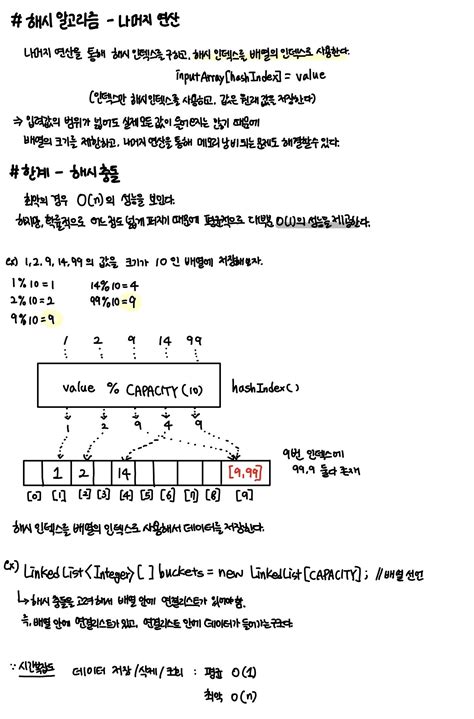 # 해시 알고리즘 - 나머지 연산
나머지 연산을 통해 해시 인덱스를 구하고, 해시 인덱스를 배열의 인덱스로 사용한다.
inputArray[hashIndex] = value
(인덱스만 해시 인덱스를 사용하고, 값은 원래 값을 저장한다)
⇒ 입력값의 범위가 넓어도 실제 모든 값이 들어오지는 않기 때문에
배열의 크기를 제한하고, 나머지 연산을 통해 메모리 낭비되는 문제도 해결할 수 있다.
# 한계 - 해시 충돌
최악의 경우 O(n)의 성능을 보인다.
하지만, 확률적으로 어느정도 넓게 퍼지기 때문에 평균적으로 대부분 O(1)의 성능을 제공한다.
ex) 1, 2, 9, 14, 99 의 값을 크기가 10 인 배열에 저장해보자.
1 % 10 = 1 14 % 10 = 4
2 % 10 = 2 99 % 10 = 9
9 % 10 = 9
1 2 9 14 99
value % CAPACITY (10) hashIndex ( )
1 2 9 4 9
9번 인덱스에
1 2 14 [9,99] 99, 9 둘다 존재
[0] [1] [2] [3] [4] [5] [6] [7] [8] [9]
해시 인덱스를 배열의 인덱스로 사용해서 데이터를 저장한다.
ex) LinkedList<Integer>[ ] buckets = new LinkedList[CAPACITY]; // 배열 선언
↳ 해시 충돌을 고려해서 배열 안에 연결리스트가 있어야함.
즉, 배열 안에 연결리스트가 있고, 연결리스트 안에 데이터가 들어가는 구조다
∵ 시간복잡도 데이터 저장/삭제/조회 : 평균 O(1)
최악 O(n)